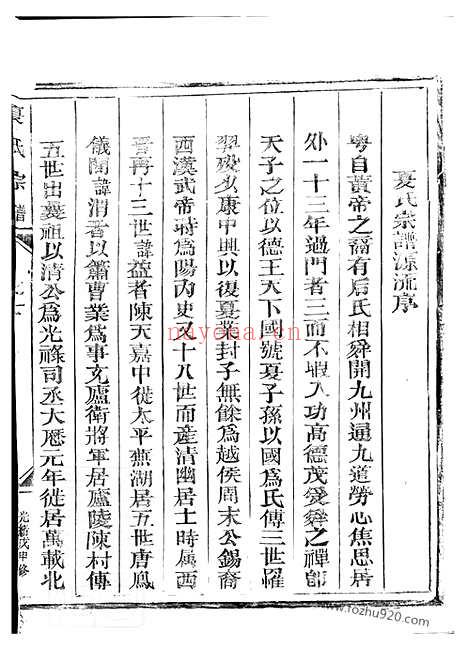 夏氏宗譜源流序
粵自黃帝之裔有后氏相舜開九州通九道勞心焦思居
外一十三年過門者三而不暇入功高德茂受舜之禪卽
天子之位以德王天下國號夏子孫以國爲氏傳三世罹
羿殘少康中興以復夏業封子無餘爲越侯周末公錫裔
西漢武帝時爲陽內史又十八世而產清幽居士時屬西
晋再十三世諱益者陳天嘉中徙太平蕪湖居五世唐鳳
儀間諱渭者以簫曹業爲事充廬衛將軍居廬陵陳村傳
五世出義祖以清公爲光祿司丞大曆元年徙居萬載北
夏氏宗譜
光緒戊申修
nayona.cn
www.fozhu920.com